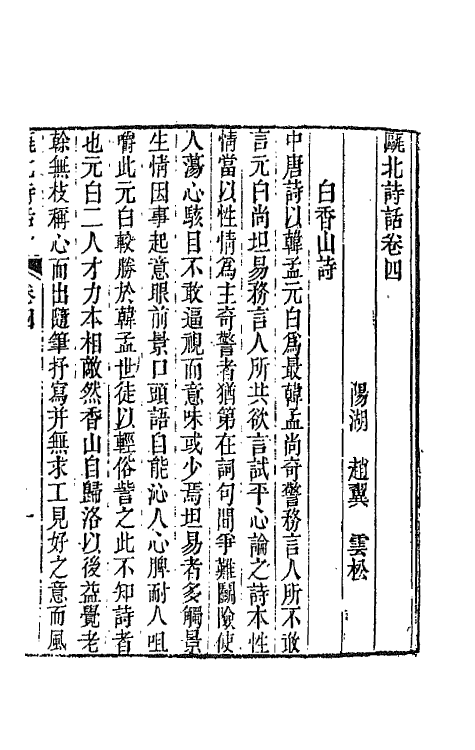 甌北詩話卷四
陽湖 趙翼 雲松
白香山詩
中唐詩以韓孟元白爲最韓孟尚奇警務言人所不敢
言元白尚坦易務言人所共欲言試平心論之詩本性
情當以性情爲主奇警者猶第在詞句間爭難鬭險使
人蕩心駭目不敢逼視而意味或少焉坦易者多觸景
生情因事起意眼前景口頭語自能沁人心脾耐人咀
嚼此元白較勝於韓孟世徒以輕俗訾之此不知詩者
也元白二人才力本相敵然香山自歸洛以後益覺老
榦無枝稱心而出隨筆抒寫并無求工見好之意而風
甌北詩話 卷四 一